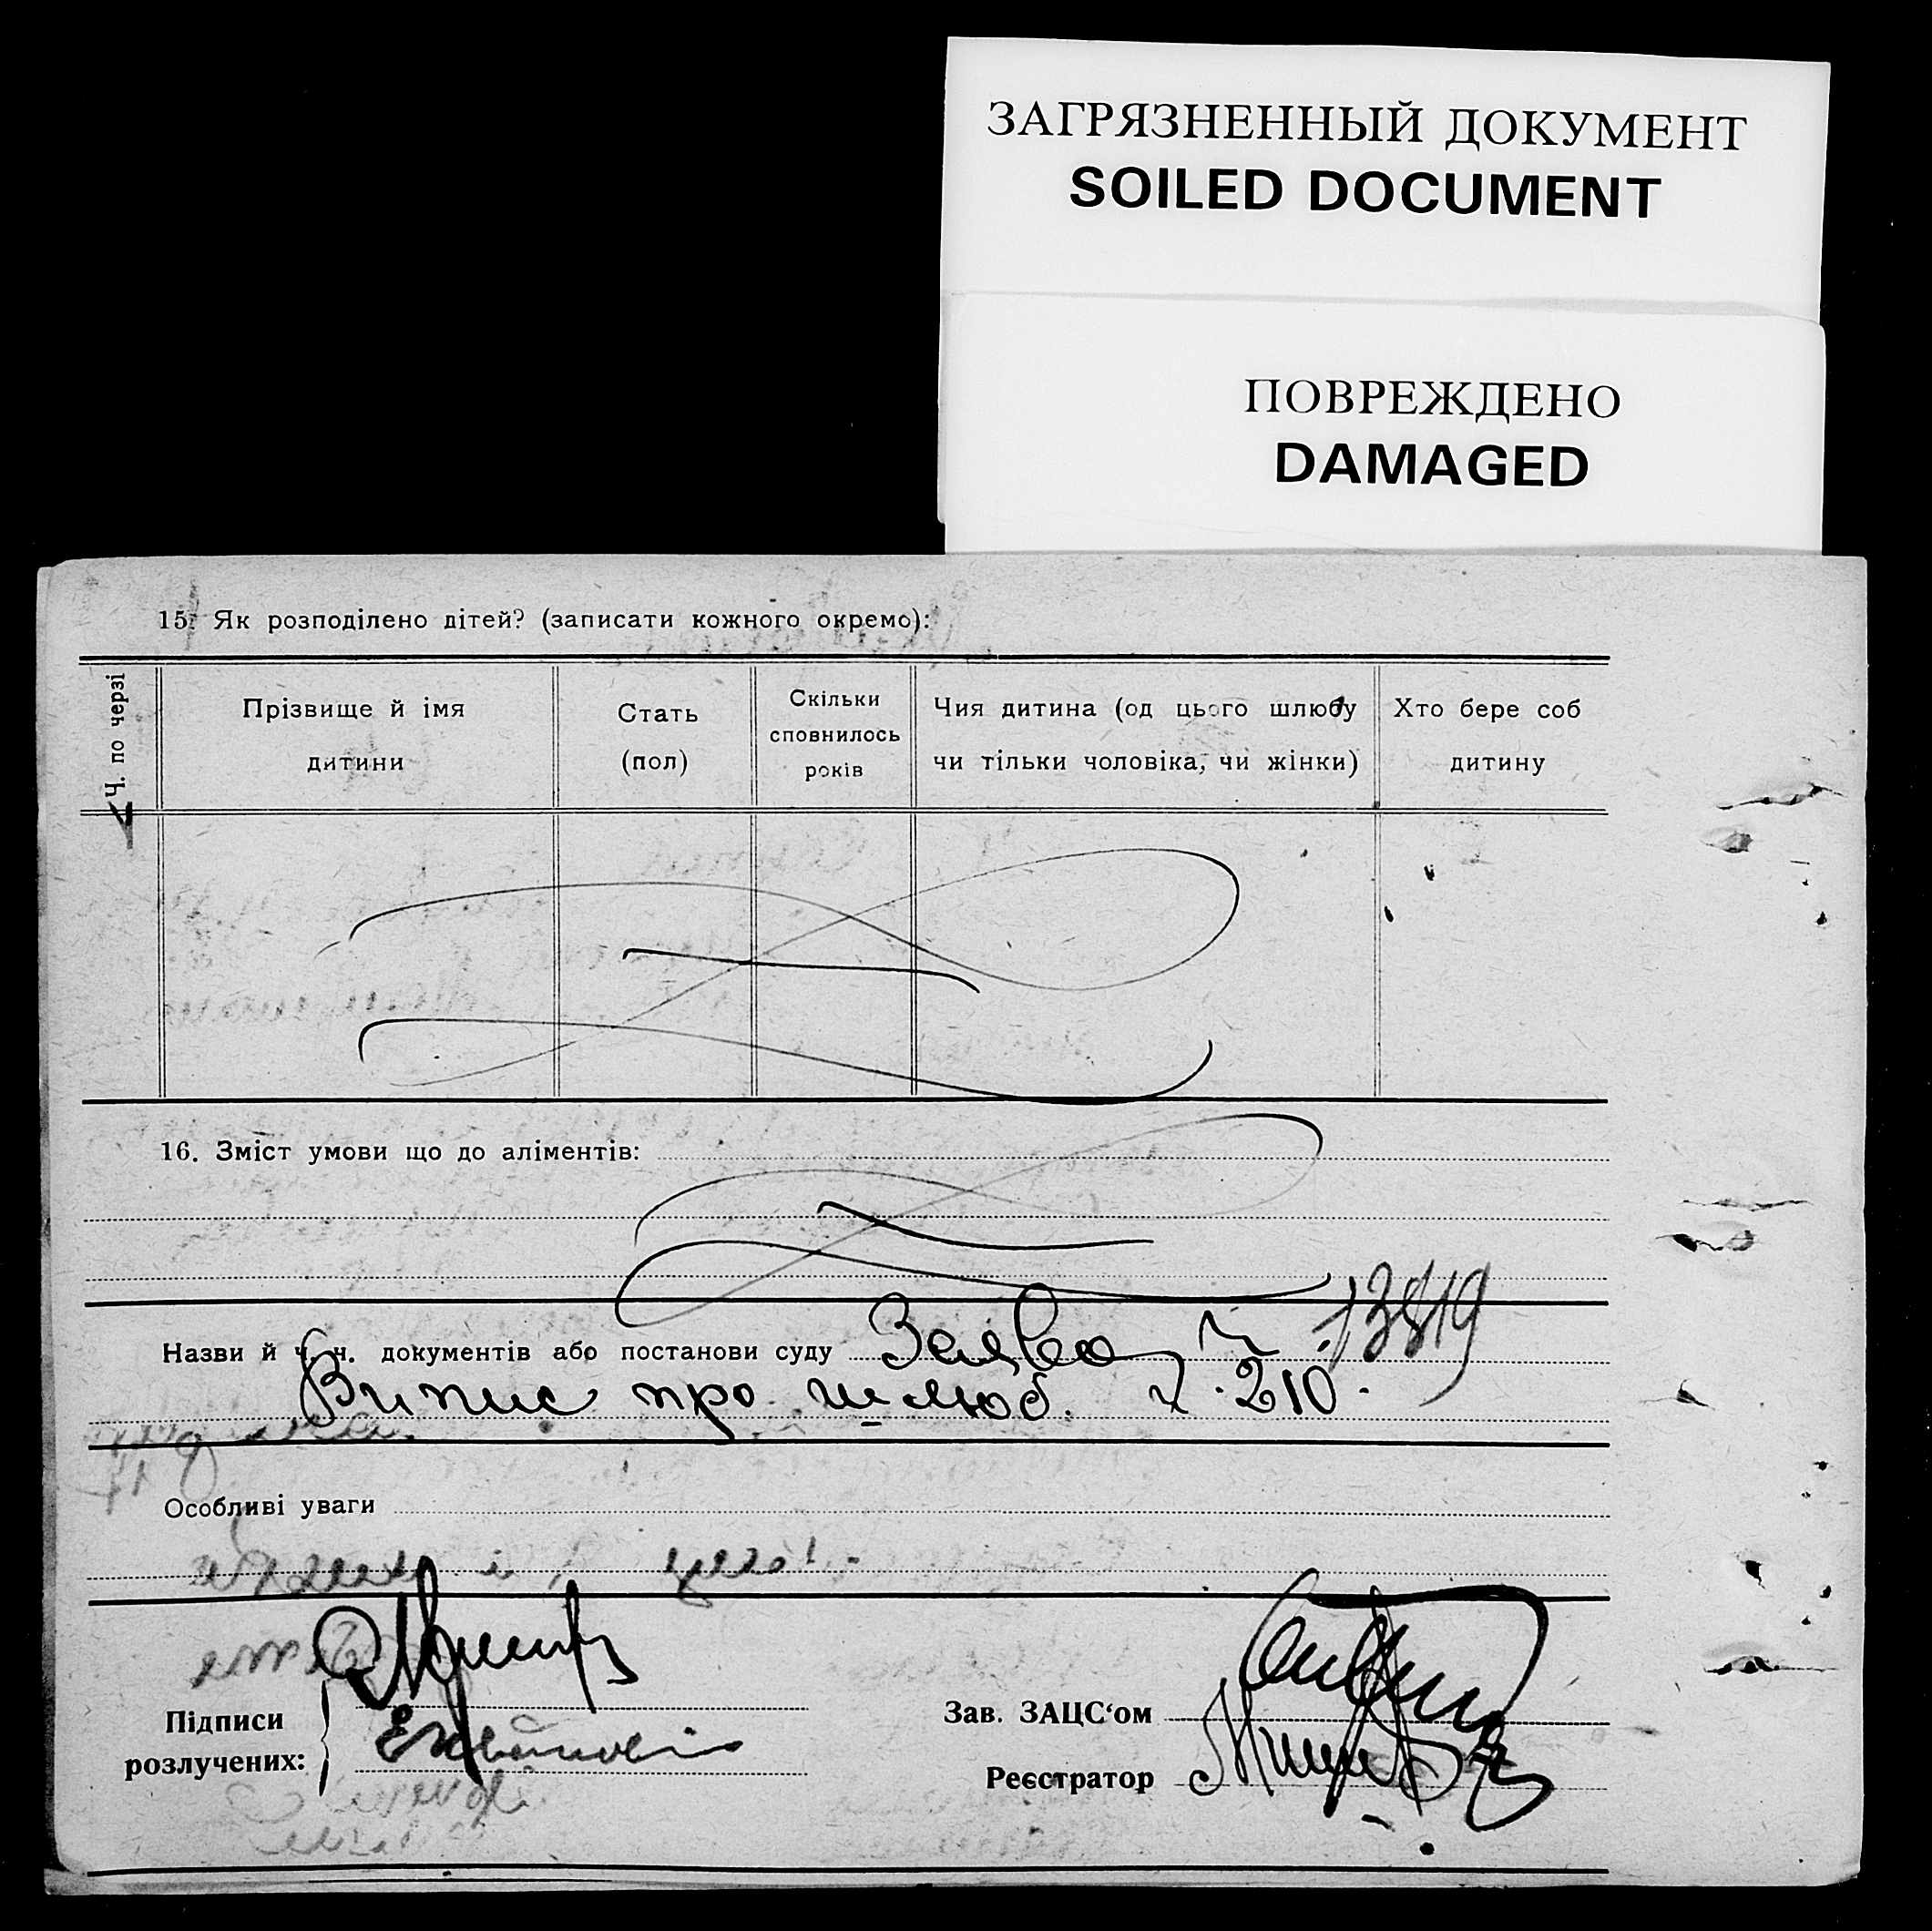 ЗАГРЯЗНЕННЫЙ ДОКУМЕНТ
SOILED DOCUMENT
ПОВРЕЖДЕНО
DAMAGED
15. Як розподілено дітей? (записати кожного окремо):
Ч. по черзі
Прізвище й імя дитини
Стать (пол)
Скільки сповнилось років
Чия дитина (од цього шлюбу чи тільки чоловіка, чи жінки)
Хто бере соб дитину
16. Зміст умови що до аліментів:
Назви й ч. ч. документів або постанови суду Заява 13819
Випис про шлюб. 210.
Особливі уваги
Підписи
розлучених:
Зав. ЗАЦС‘ом
Реєстратор